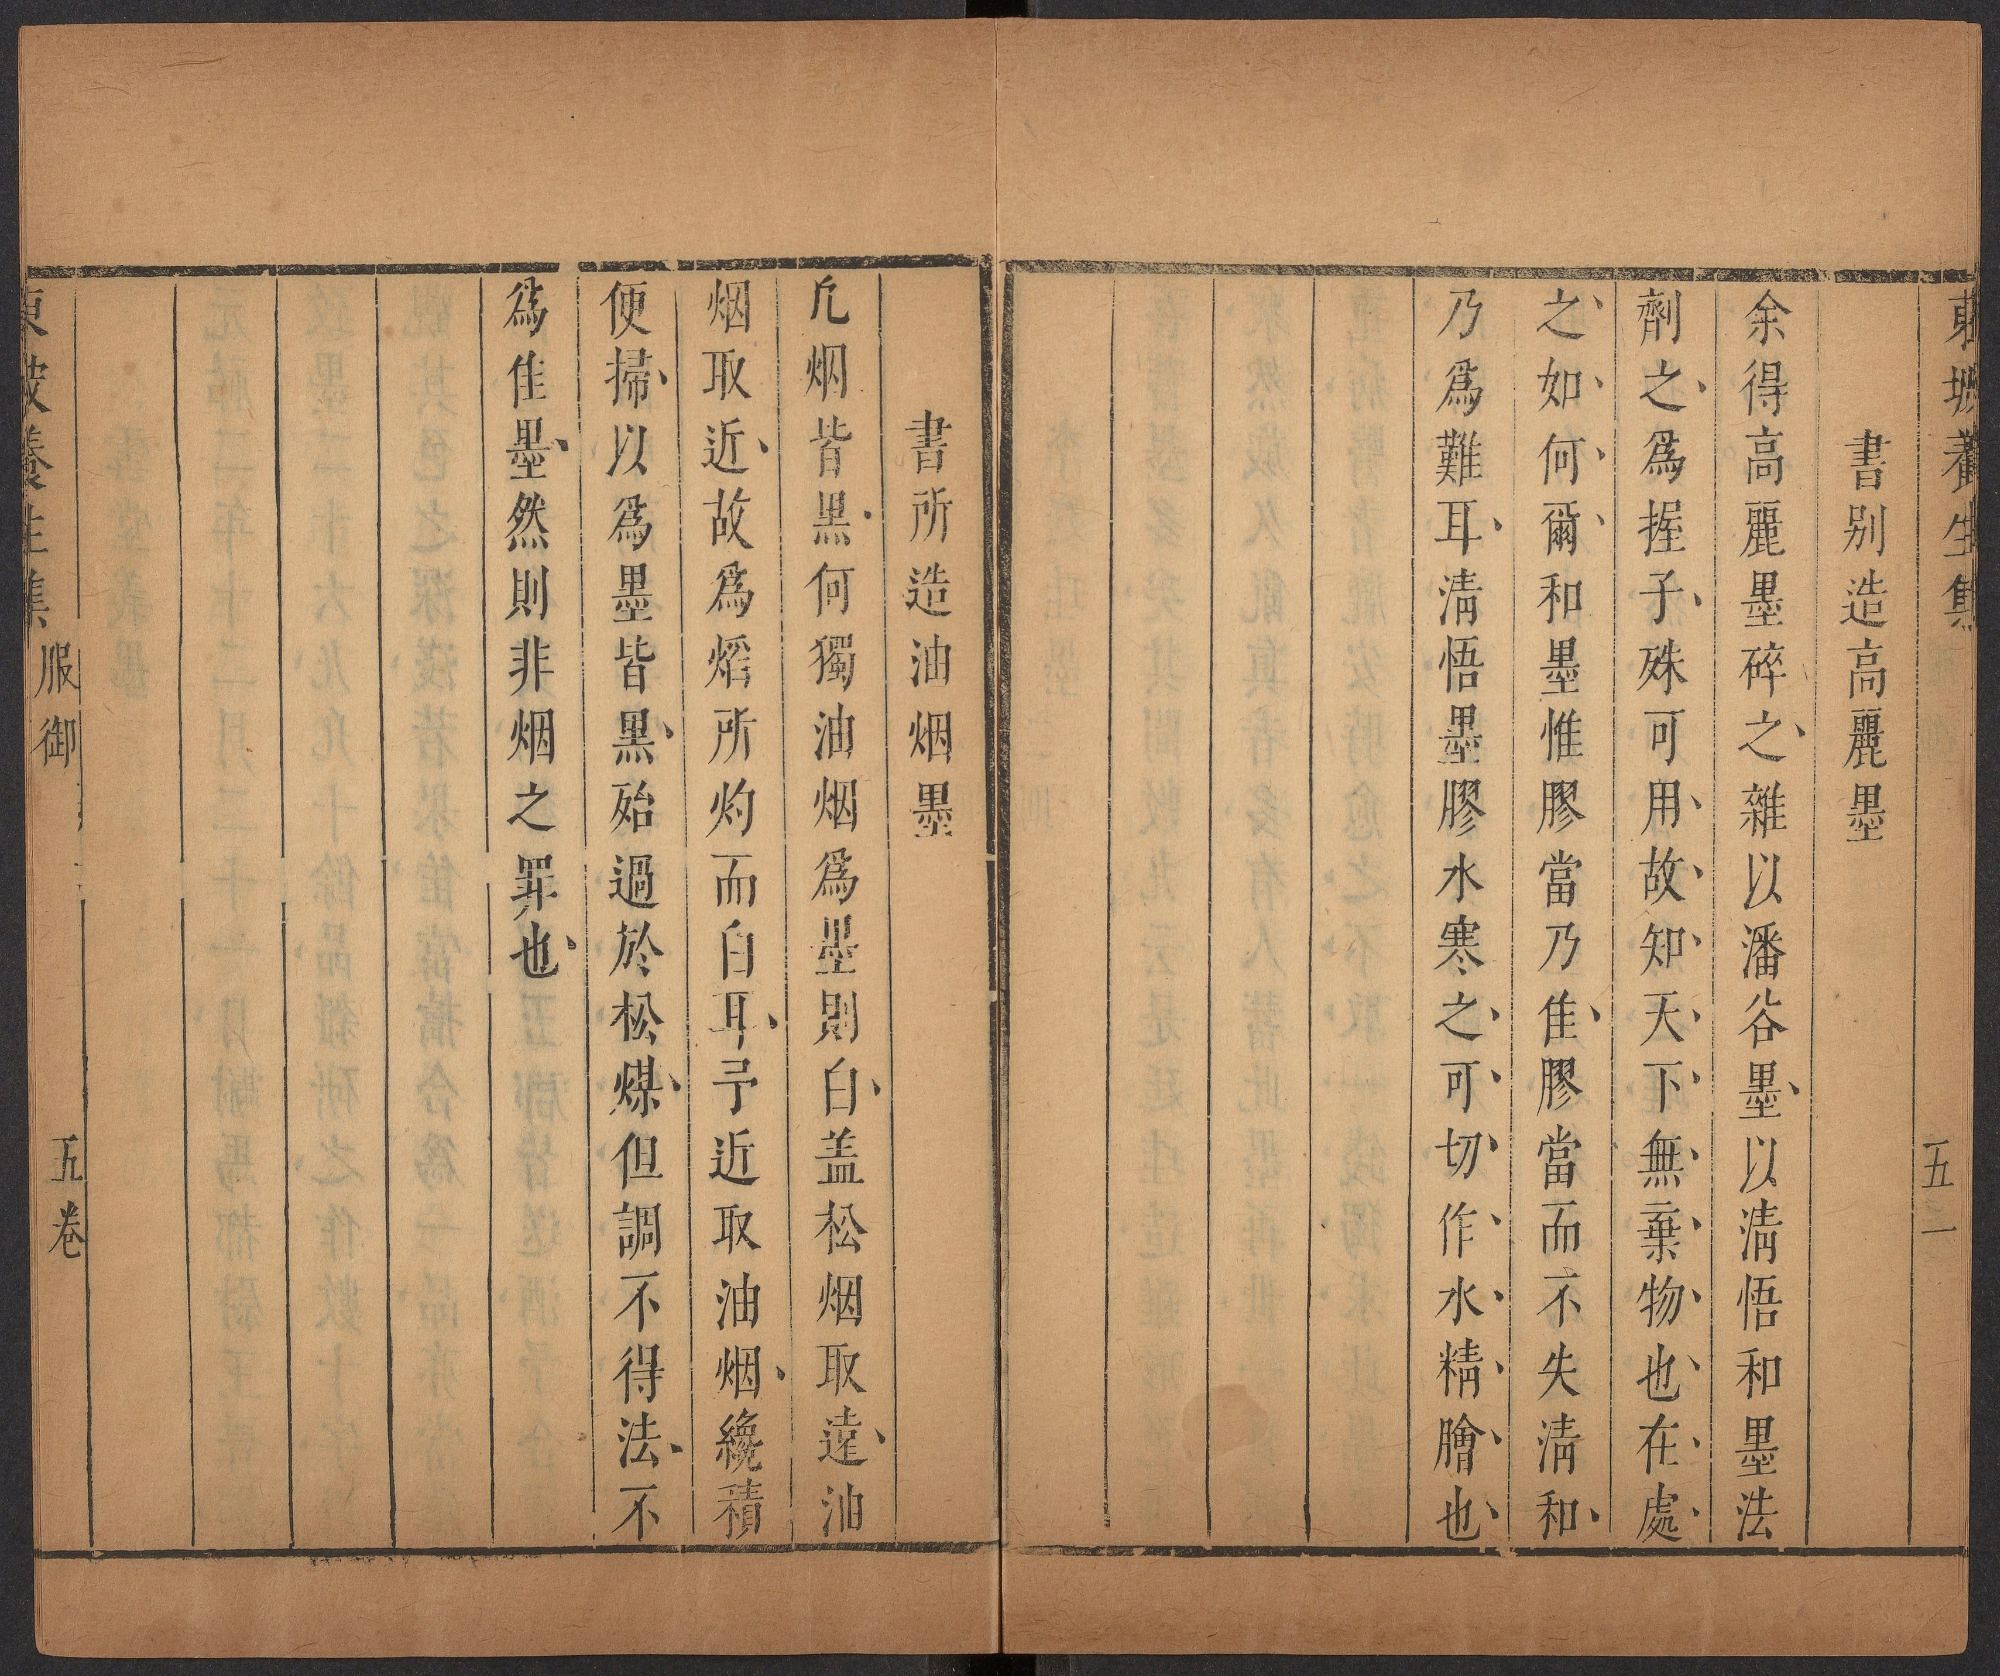 東坡養生集
五
一
書别造高麗墨
余得高麗墨碎之雜以潘谷墨以清悟和墨法
劑之為握子殊可用故知天下無棄物也在處
之如何爾和墨惟膠當乃佳膠當而不失清和
乃為難耳清悟墨膠水寒之可切作水精膾也
書所造油烟墨
凢烟皆黒何獨油烟為墨則白盖松烟取遠油
烟取近故為熖所灼而白耳予近取油烟纔積
便掃以為墨皆黒殆過於松煤但調不得法不
為佳墨然則非烟之罪也
東坡養生集
服御
五卷